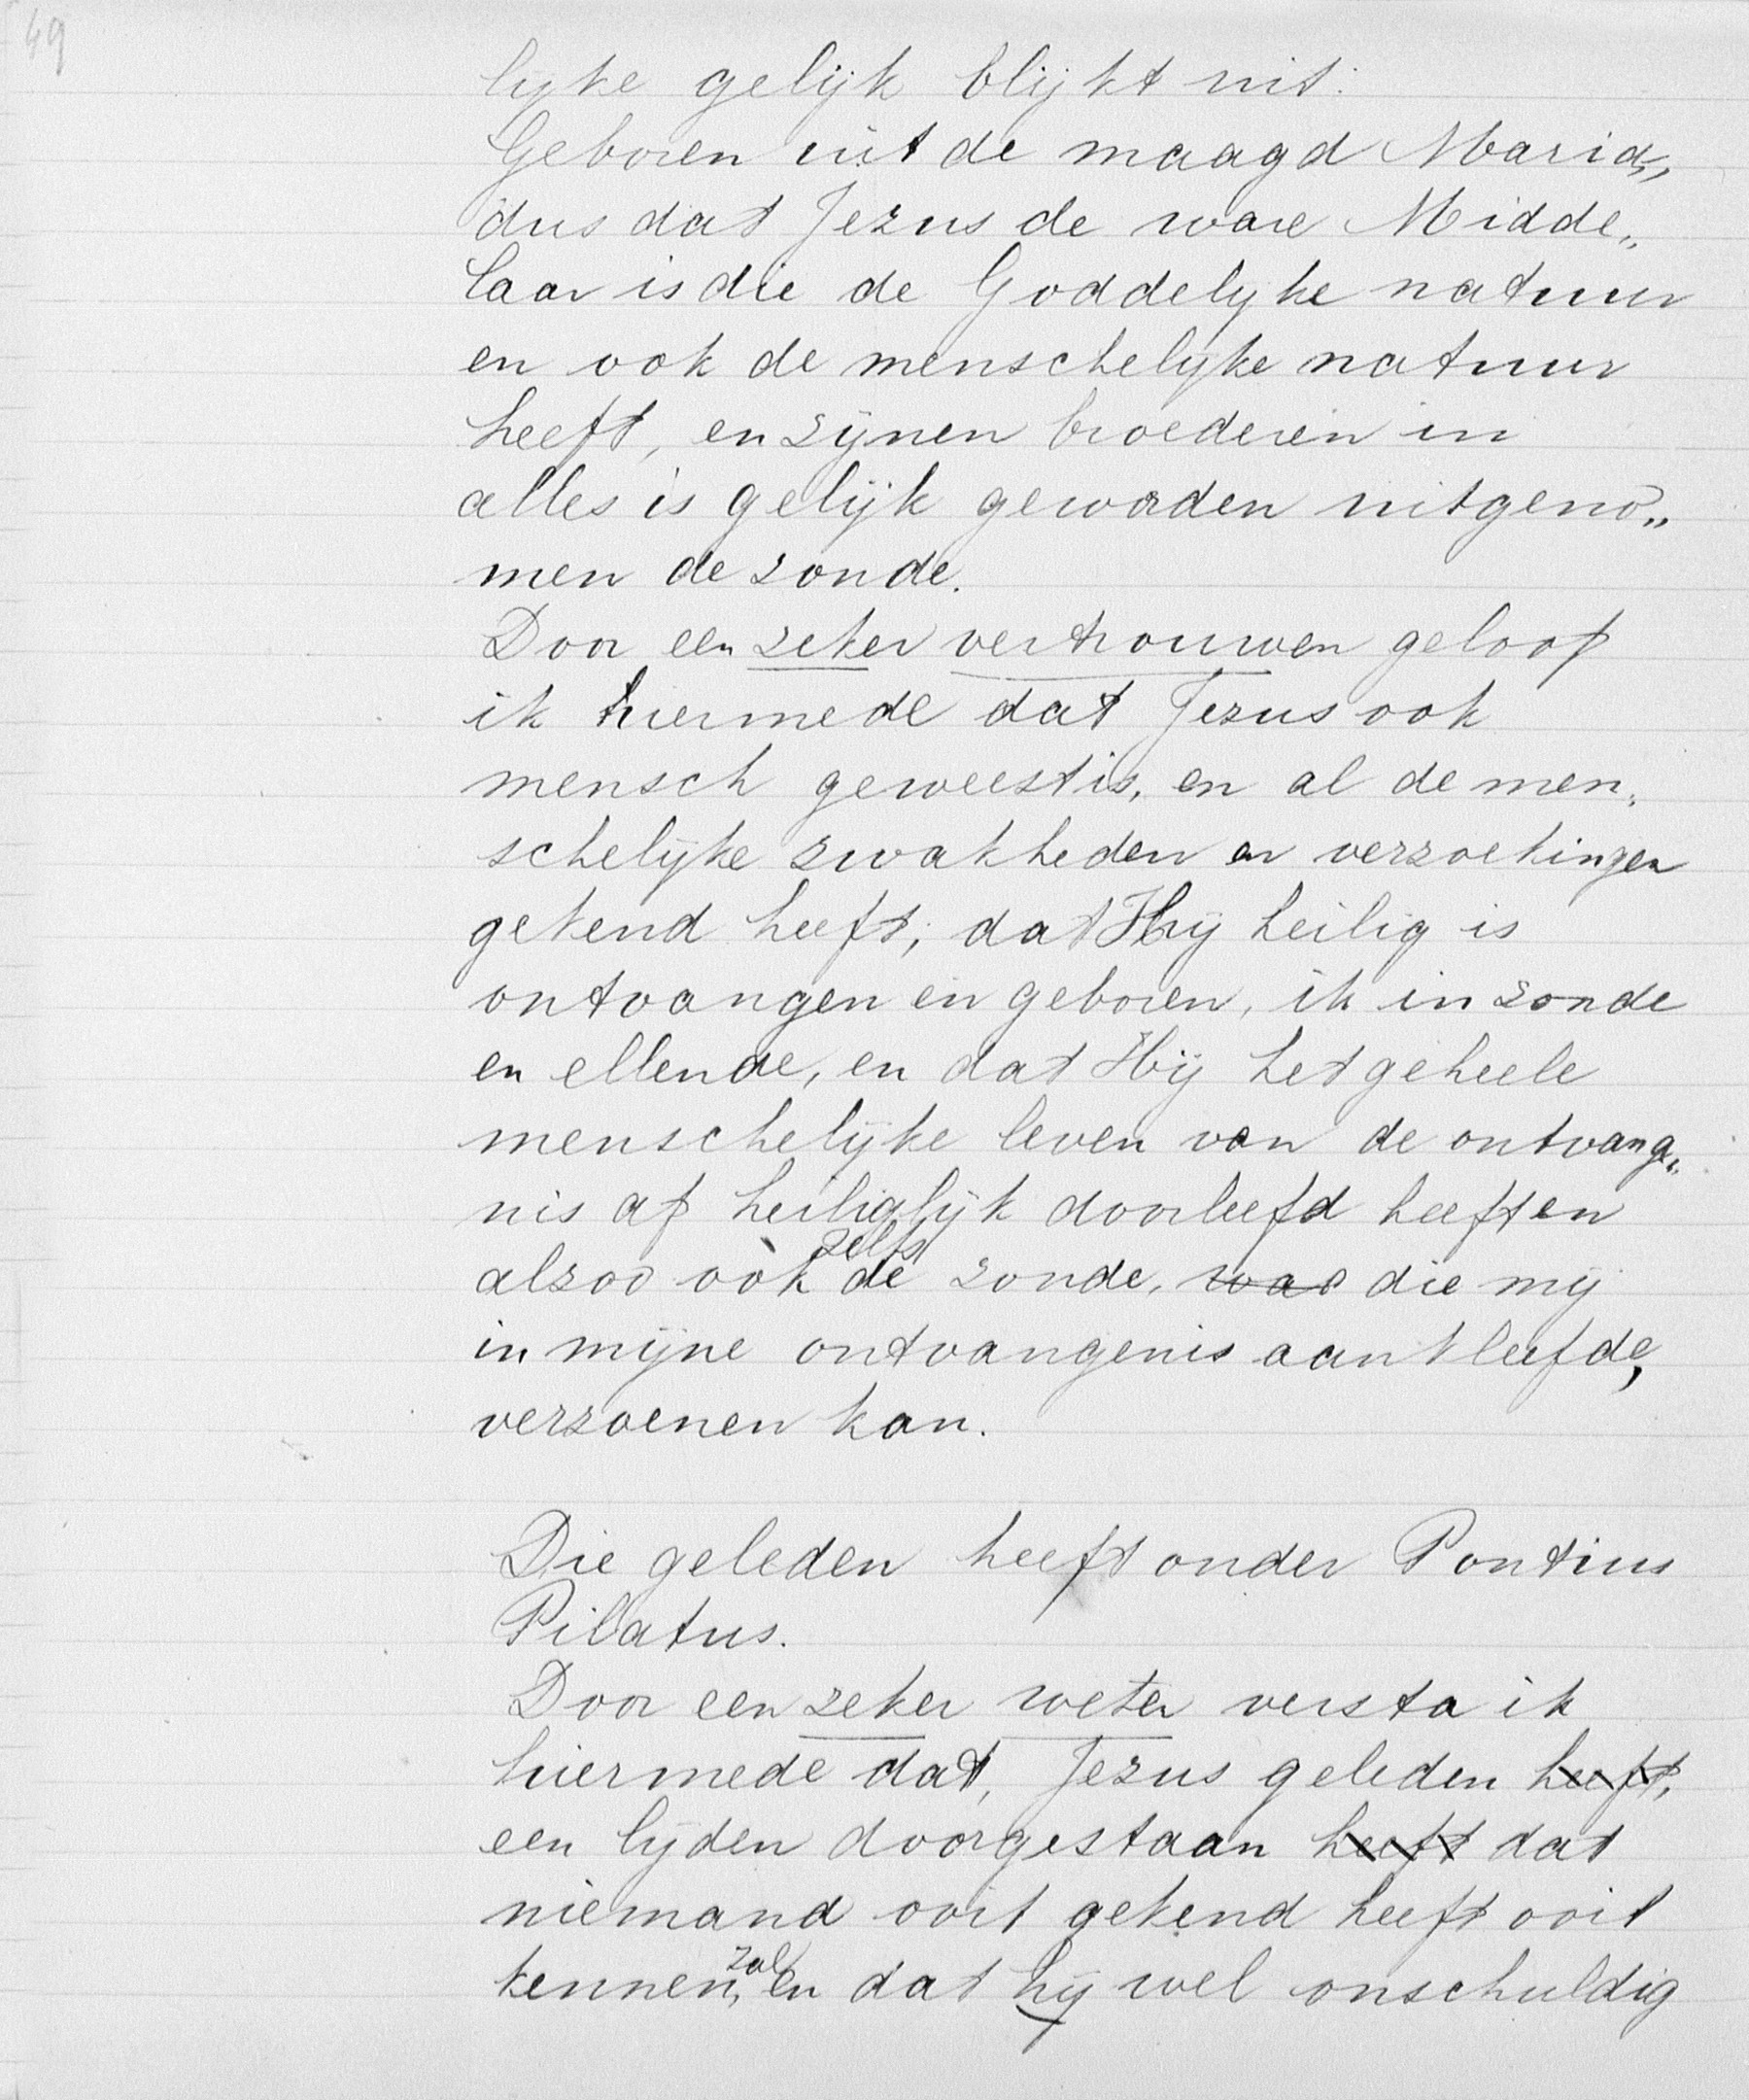 49
lyke gelijk blijkt uit:
Geboren uit de maagd Maria,,
dus dat Jezus de ware Midde,,
laar is die de Goddelyke natuur
en ook de menschelyke natuur
heeft, en zijnen broederen in
alles is gelijk geworden uitgenō,,
men de zonde.
Door een zeker vertrouwen geloof
ik hiermede dat Jezus ook
mensch geweest is, en al de men,,
schelijke zwakheden en verzoekingen
gekend heeft, dat Hij heilig is
ontvangen en geboren, ik in zonde
en ellende, en dat Hij het geheele
menschelijke leven van de ontvang,,
nis af heiliglijk doorleefd heeft en
zelfs
alzoo oòk de zonde, was die mij
in mijne ontvangenis aankleefde,
verzoenen kan.
Die geleden heeft onder Pontius
Pilatus.
Door een zeker weten versta ik
hiermede dat, Jezus geleden heeft,
een lijden doorgestaan heeft dat
niemand ooit gekend heeft ooit
zal
kennen, en dat hij wel onschuldig